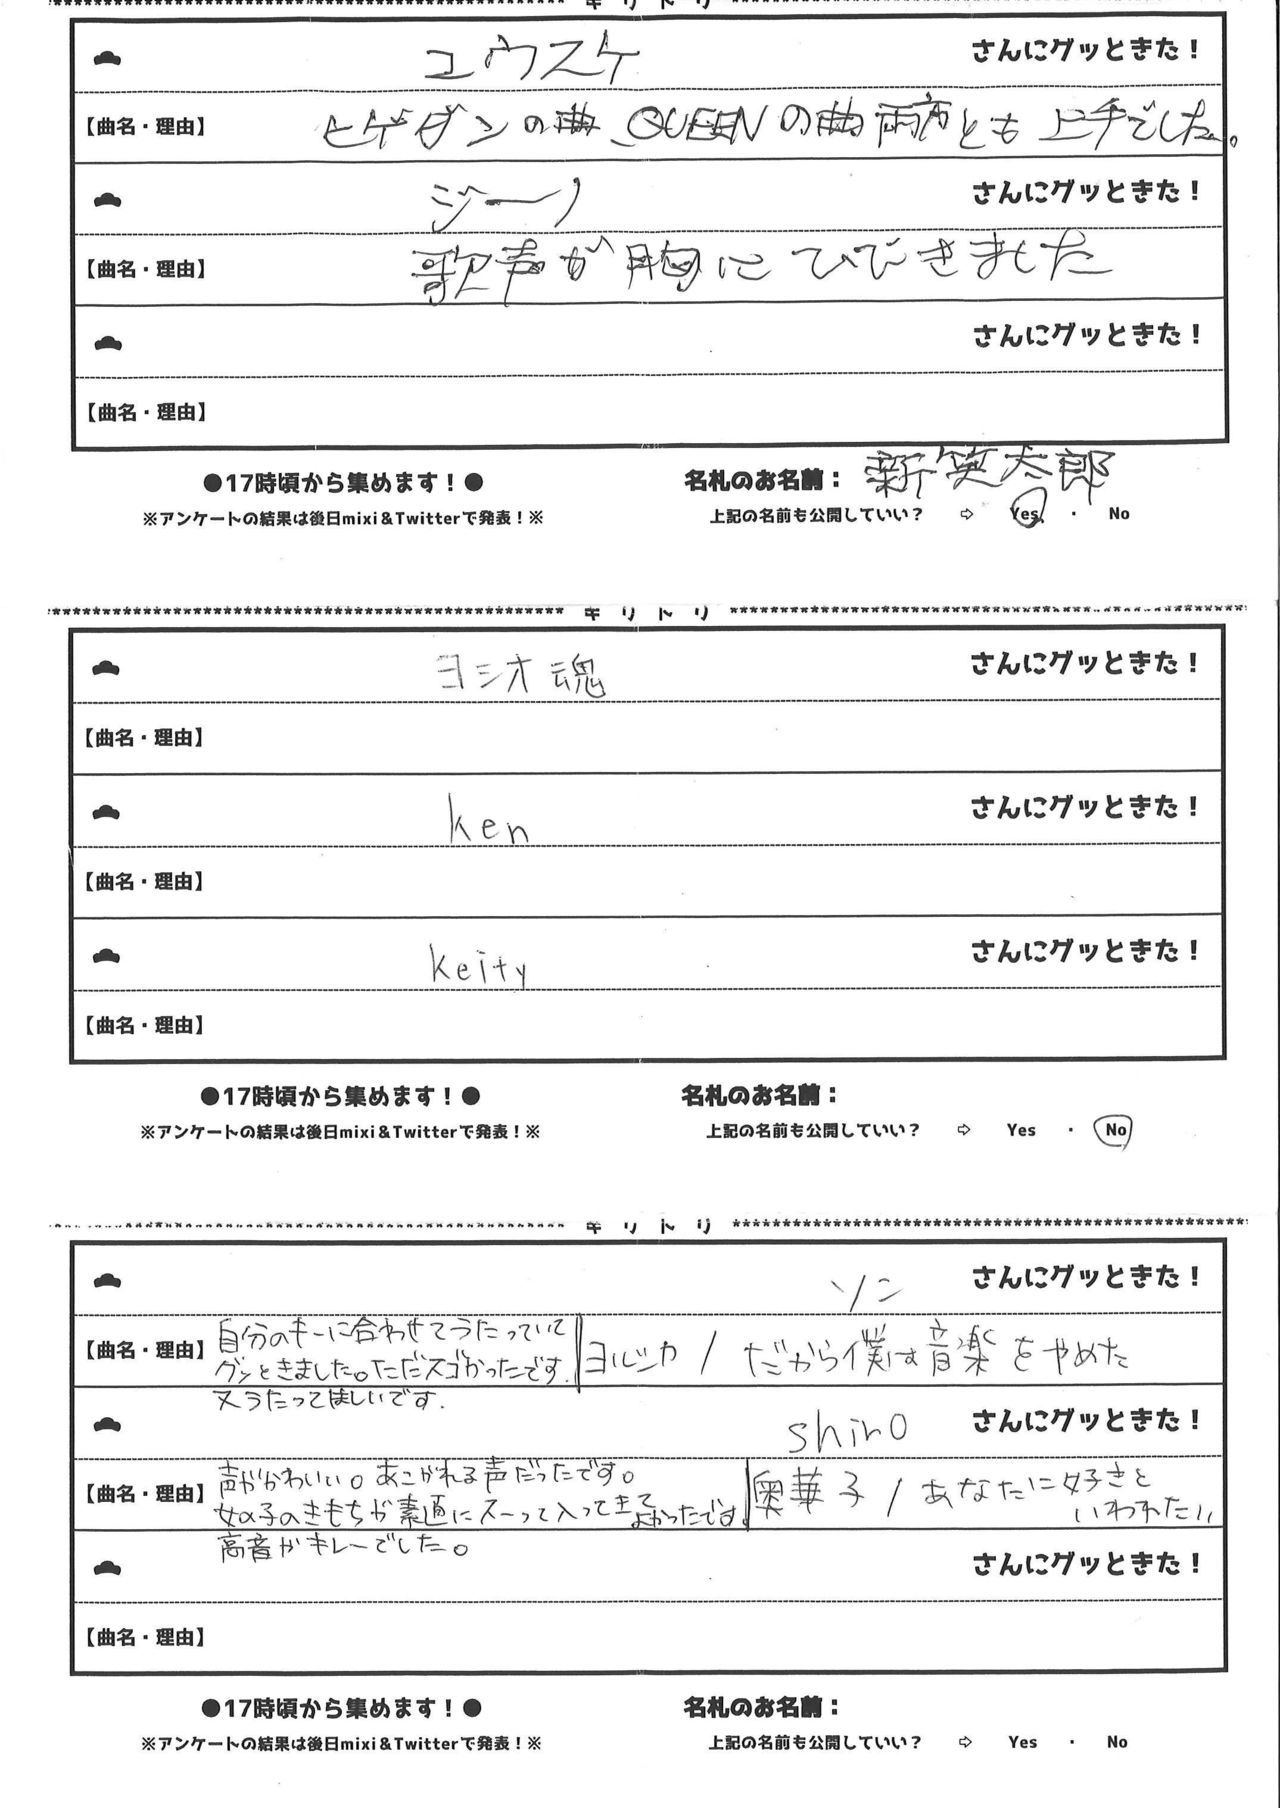 キリトリ
ユウスケ さんにグッときた！
【曲名・理由】 ヒゲダンの曲、QUEENの曲両方とも上手でした。
ジーノ さんにグッときた！
【曲名・理由】 歌声が胸にひびきました
さんにグッときた！
【曲名・理由】
●17時頃から集めます！● 名札のお名前： 新笑太郎
※アンケートの結果は後日mixi＆Twitterで発表！※ 上記の名前も公開していい？ ⇨ Yes ・ No
キリトリ
ヨシオ魂 さんにグッときた！
【曲名・理由】
ken さんにグッときた！
【曲名・理由】
keity さんにグッときた！
【曲名・理由】
●17時頃から集めます！● 名札のお名前：
※アンケートの結果は後日mixi＆Twitterで発表！※ 上記の名前も公開していい？ ⇨ Yes ・ No
キリトリ
ソン さんにグッときた！
【曲名・理由】 自分のキーに合わせてうたっていて
グッときました。ただスゴかったです。
又うたってほしいです.
ヨルシカ / だから僕は音楽をやめた
shiro さんにグッときた！
【曲名・理由】 声がかわいい。あこがれる声だったです。
女の子のきもちが素直にスーって入ってきて
よかったです。
高音がキレーでした。
奥華子 / あなたに好きと
いわれたい
さんにグッときた！
【曲名・理由】
●17時頃から集めます！● 名札のお名前：
※アンケートの結果は後日mixi＆Twitterで発表！※ 上記の名前も公開していい？ ⇨ Yes ・ No